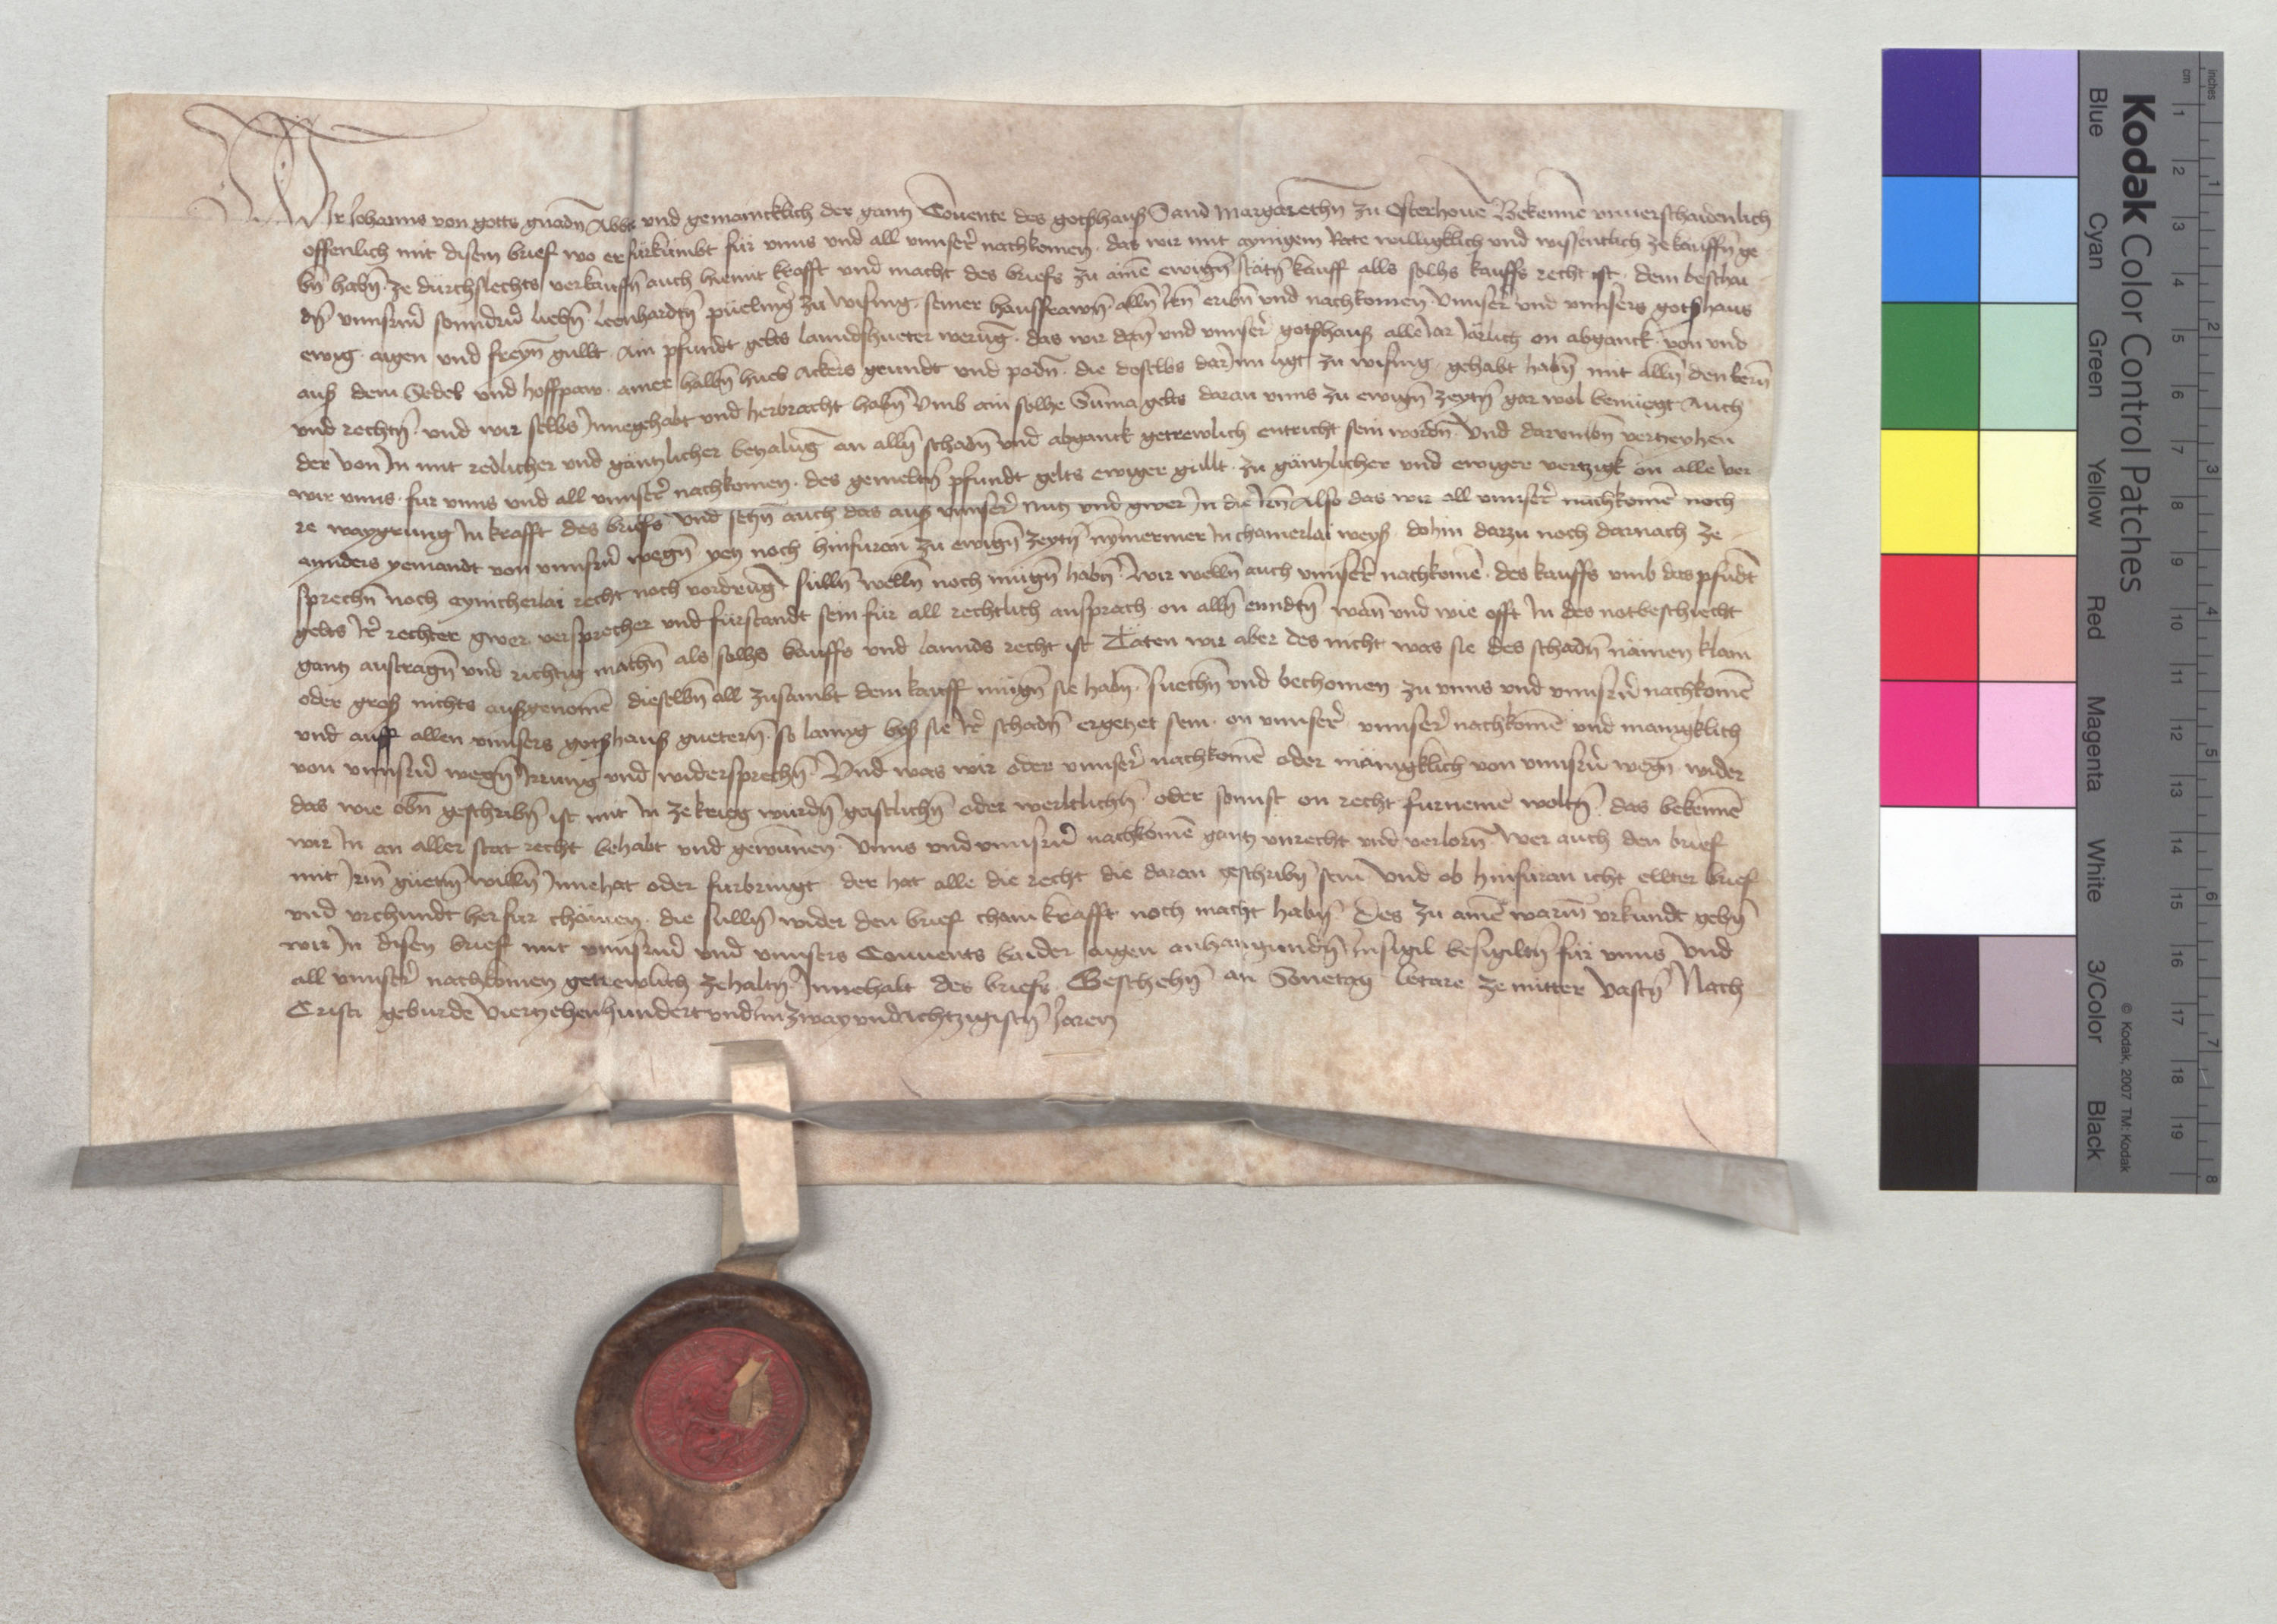 Wir Johanns von gotts gnadn Abbt und gemaincklich der gantz Convente des gotshauß Sand Margarethn zu Osterhove Bekenne unverschaidenlich
offenlich mit disem brief wo er fürkumbt für unns und all unnser nachkomen das wir mit aynigem Rate willigklich und wissentlich ze kauffn ge
bn habn ze dürchslechts verkauffn auch hiemit krafft und macht des briefs zu aine ewign stätn kauff alls solhs kauffs recht ist dem beschai
dn unnsrm sonndrn liebn Leenhardtn zu wising seiner hausfrawn alln Irn eribn und nachkomen Unnser und unnsers gotshaus
ewig aigen und freyn gullt Ain pfundt gelts lanndshueter werung das wir datz und unnser gotshauß alle Jar Järlich on abganck von und
auß dem Sedel und hoffpaw ainer halbn hueb Ackers grundt und podn die doselbs darInn ligt zu wising gehabt habn mit alln den Eern
und rechtn und wir selbs Innegehabt und herbracht habn Umb ain solhe Suma gelts daran unns zu ewign zeytn gar wol benüegt Auch
der von In mit redlicher und gäntzlicher betzalug an alln schadn und abganck getrewlich entricht sein wordn Und darumbn vertzeyhen
wir unns für unns und all unnser nachkomen des gemeltn pfundt gelts ewiger güllt zu gäntzlicher und ewiger vertzigk on alle ver
re waygrung In krafft des briefs und setzn auch das auß unnser nutz und gwer In die Irn Also das wir all unnser nachkome noch
annders yemandt von unnsrn wegn yetz noch hinfüran zu ewign zeytn nymermer In chainerlai weyß dohin darzu noch darnach ze
sprechn noch eynicherlai recht noch vordrug sülln welln noch mügn habn Wir welln auch unnser nachkome des kauffs umb das pfudt
gelts Ir rechter gwer versprecher und fürstandt sein für all rechtlich ansprach on alln enndtn wan und wie offt In des notbeschiecht
gantz austragn und richtig machn als solhs kauffs und lannds recht ist Täten wir aber des nicht was sie des schadn nämen klain
oder groß nichts außgenome dieselbn all zusambt dem kauff mügn sie habn suechn und bechomen zu unns und unnsrn nachkome
und auff allen unnsers gotshauß guetern so lanng byß sie Ir schadn ergetzet sein on unnser unnser nachkome und manigklich
von unnsrn wegn Irrung und widersprechn Und was wir oder unnser nachkome oder mänigklich von unnsrn wegn wider
das wie obn geschribn ist mit In ze krieg wurdn geistlichn oder werltlichn oder sonnst on recht fürneme woltn das bekenne
wir In an aller stat recht behabt und gewunnen Unns und unnsrn nachkome gantz unrecht und verlorn Wer auch den brief
mit Irm güetm willn Innehat oder fürbringt der hat alle die recht die daran geschribn sein Und ob hinfüran icht ellter brief
und urchundt herfür chämen die sülln wider den brief chain krafft noch macht habn Des zu aine warm urkundt gebn
wir In disen brief mit unnsrm und unnsers Convents baider aigen anhangundn Insigil besigiltn für unns Und
all unnser nachkomen getrewlich zehaltn Innehalt des briefs Geschehn an Sonetag letare ze mitter vastn Nach
Cristi geburde Viertzehenhundert und Im zway und achtzigistn Jaren
Kodak Color Control Patches
Blue Cyan Green Yellow Red Magenta White 3/Color Black
© Kodak, 2007 TM: Kodak
cm 1 2 3 4 5 6 7 8 9 10 11 12 13 14 15 16 17 18 19
inches 1 2 3 4 5 6 7 8